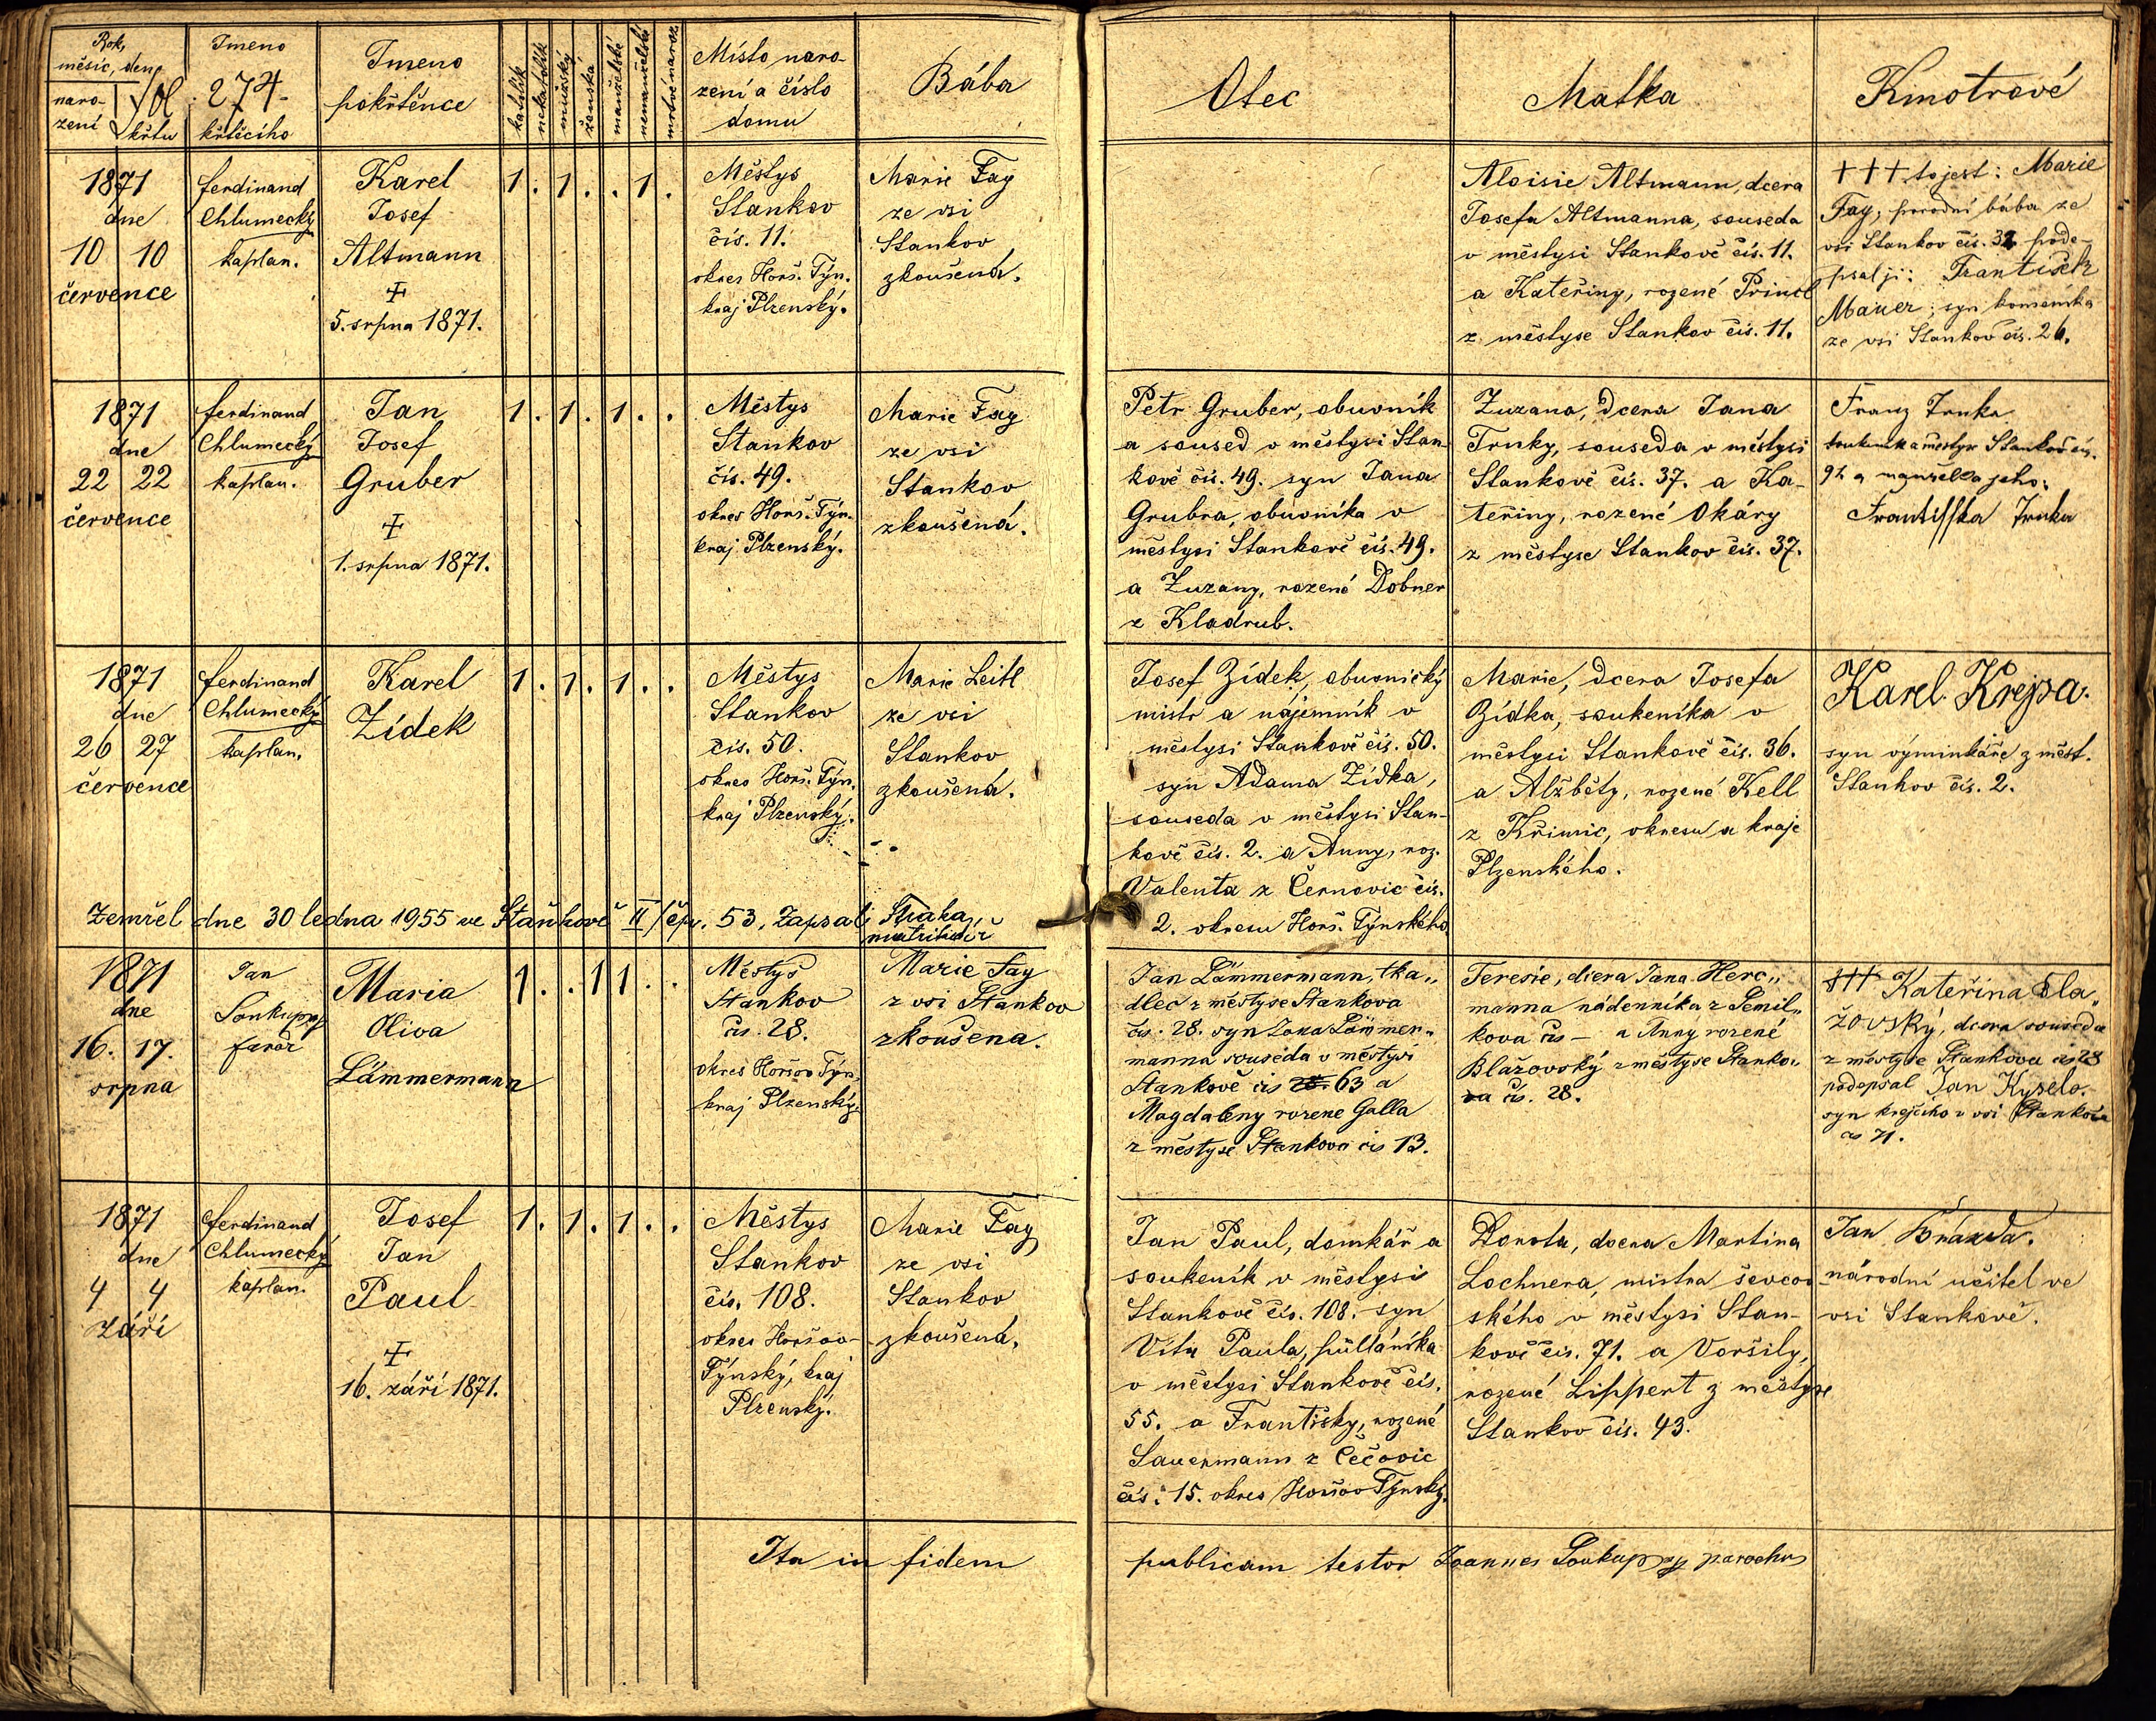 Rok,
měsíc, den
naro-
zení
křtu
Fol. 274.
Jmeno
křtícího
Jmeno
pokřtěnce
katolík
nekatolík
mužský
ženská
manželské
nemanželské
mrtvě naroz.
Místo naro-
zení a číslo
domu
Bába
Otec
Matka
Kmotrové
1871
dne
10 10
července
Ferdinand
Chlumecký
kaplan.
Karel
Josef
Altmann
‡
5. srpna 1871.
1 . 1 . . 1 .
Městys
Stankov
čís. 11.
okres Horš. Týn.
kraj Plzenský.
Marie Fay
ze vsi
Stankov
zkoušená.
Aloisie Altmann, dcera
Josefa Altmanna, souseda
v městysi Stankově čís. 11.
a Kateřiny, rozené Princl
z městyse Stankov čís. 11.
+++ to jest: Marie
Fay, porodní bába ze
vsi Stankov čís. 32 pode-
psal ji: František
Mauer, syn kominíka
ze vsi Stankov čís. 26.
1871
dne
22 22
července
Ferdinand
Chlumecký
kaplan.
Jan
Josef
Gruber
‡
1. srpna 1871.
1 . 1 . 1 . .
Městys
Stankov
čís. 49.
okres Horš. Týn.
kraj Plzenský.
Marie Fay
ze vsi
Stankov
zkoušená.
Petr Gruber, obuvník
a soused v městysi Stan-
kově čís. 49. syn Jana
Grubra, obuvníka v
městysi Stankově čís. 49.
a Zuzany, rozené Dobner
z Kladrub.
Zuzana, dcera Jana
Trnky, souseda v městysi
Stankově čís. 37. a Ka-
teřiny, rozené Okáry
z městyse Stankov čís. 37.
Franz Trnka
městyse Stankov čís.
92 a manželka jeho:
Frantisska Trnka
1871
dne
26 27
července
Ferdinand
Chlumecký
kaplan.
Karel
Zídek
1 . 1 . 1 . .
Městys
Stankov
čís. 50.
okres Horš. Týn.
kraj Plzenský.
Marie Leitl
ze vsi
Stankov
zkoušená.
Josef Zídek, obuvnický
mistr a nájemník v
městysi Stankově čís. 50.
syn Adama Zídka,
souseda v městysi Stan-
kově čís. 2. a Anny, roz.
Valenta z Černovic čís.
2. okresu Horš. Týnského.
Marie, dcera Josefa
Zídka, soukeníka v
městysi Stankově čís. 36.
a Alžběty, rozené Kell
z Křimic, okresu a kraje
Plzenského.
Karel Krejpa.
syn výminkáře z měst.
Stankov čís. 2.
Zemřel dne 30 ledna 1955 ve Staňkově II/čp. 53, Zapsal: Straka
matrikář
1871
dne
16. 17.
srpna
Jan
Soukup
farář
Maria
Oliva
Lämmermann
1 . . 1 1 . .
Městys
Stankov
čís. 28.
okres Horšov Týn.
kraj Plzenský.
Marie Fay
z vsi Stankov
zkoušena.
Jan Lämmermann, tka„
dlec z městyse Stankova
čís. 28. syn Jana Lämmer„
manna souseda v městysi
Stankově čís 28. 63 a
Magdaleny rozene Galla
z městyse Stankova čís 13.
Teresie, dcera Jana Herc„
manna nádenníka z Semil„
kova čís — a Anny rozené
Blažovský z městyse Stanko„
va čís. 28.
+++ Kateřina Bla„
žovský, dcera souseda
z městyse Stankova čís 28
podepsal Jan Kysela.
syn krejčího v vsi Stankova
čs 71.
1871
dne
4 4
září
Ferdinand
Chlumecký
kaplan.
Josef
Jan
Paul
‡
16. září 1871.
1 . 1 . 1 . .
Městys
Stankov
čís. 108.
okres Horšov-
Týnský, kraj
Plzenský.
Marie Fay
ze vsi
Stankov
zkoušená.
Jan Paul, domkář a
soukeník v městysi
Stankově čís. 108. syn
Víta Paula, půlláníka
v městysi Stankově čís.
55. a Františky, rozené
Sauermann z Čečovic
čís. 15. okres Horšov Týnský.
Dorota, dcera Martina
Lochnera, mistra ševcov-
ského v městysi Stan-
kově čís. 71. a Voršily,
rozené Lippert z městyse
Stankov čís. 43.
Jan Brázda.
národní učitel ve
vsi Stankově.
Ita in fidem publicam testor Joannes Soukup parochus